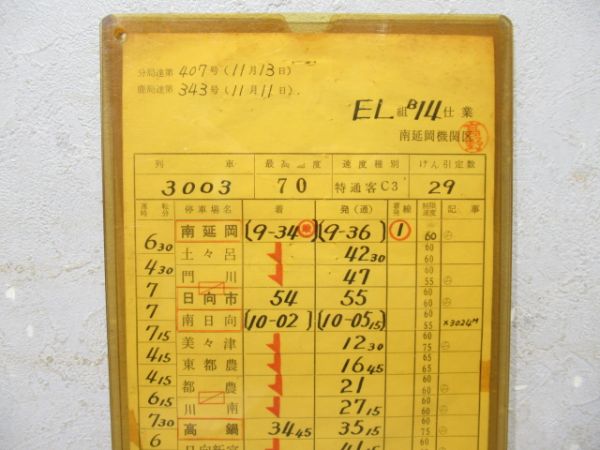 分局達第 407号(11月13日)
鹿局達第 343号(11月11日).
EL組B14仕業
南延岡機関区
列車 最高速度 速度種別 けん引定数
3003 70 特通客C3 29
運転時分 停車場名 着 発(通) 着発線 制限速度 記事
南延岡 (9-34 (9-36) 1 60
6 30
土々呂 42 30
4 30
門川 47 55
7
日向市 54 55 60
7
南日向 (10-02) (10-05 15) 60 55 ×3024M
7 15
美々津 12 30 60 75
4 15
東都農 16 45 60 65
4 15
都農 21 60
6 15
川南 27 15 60 55
7 30
高鍋 34 45 35 15 60 75
6
日向新富 41 15 60